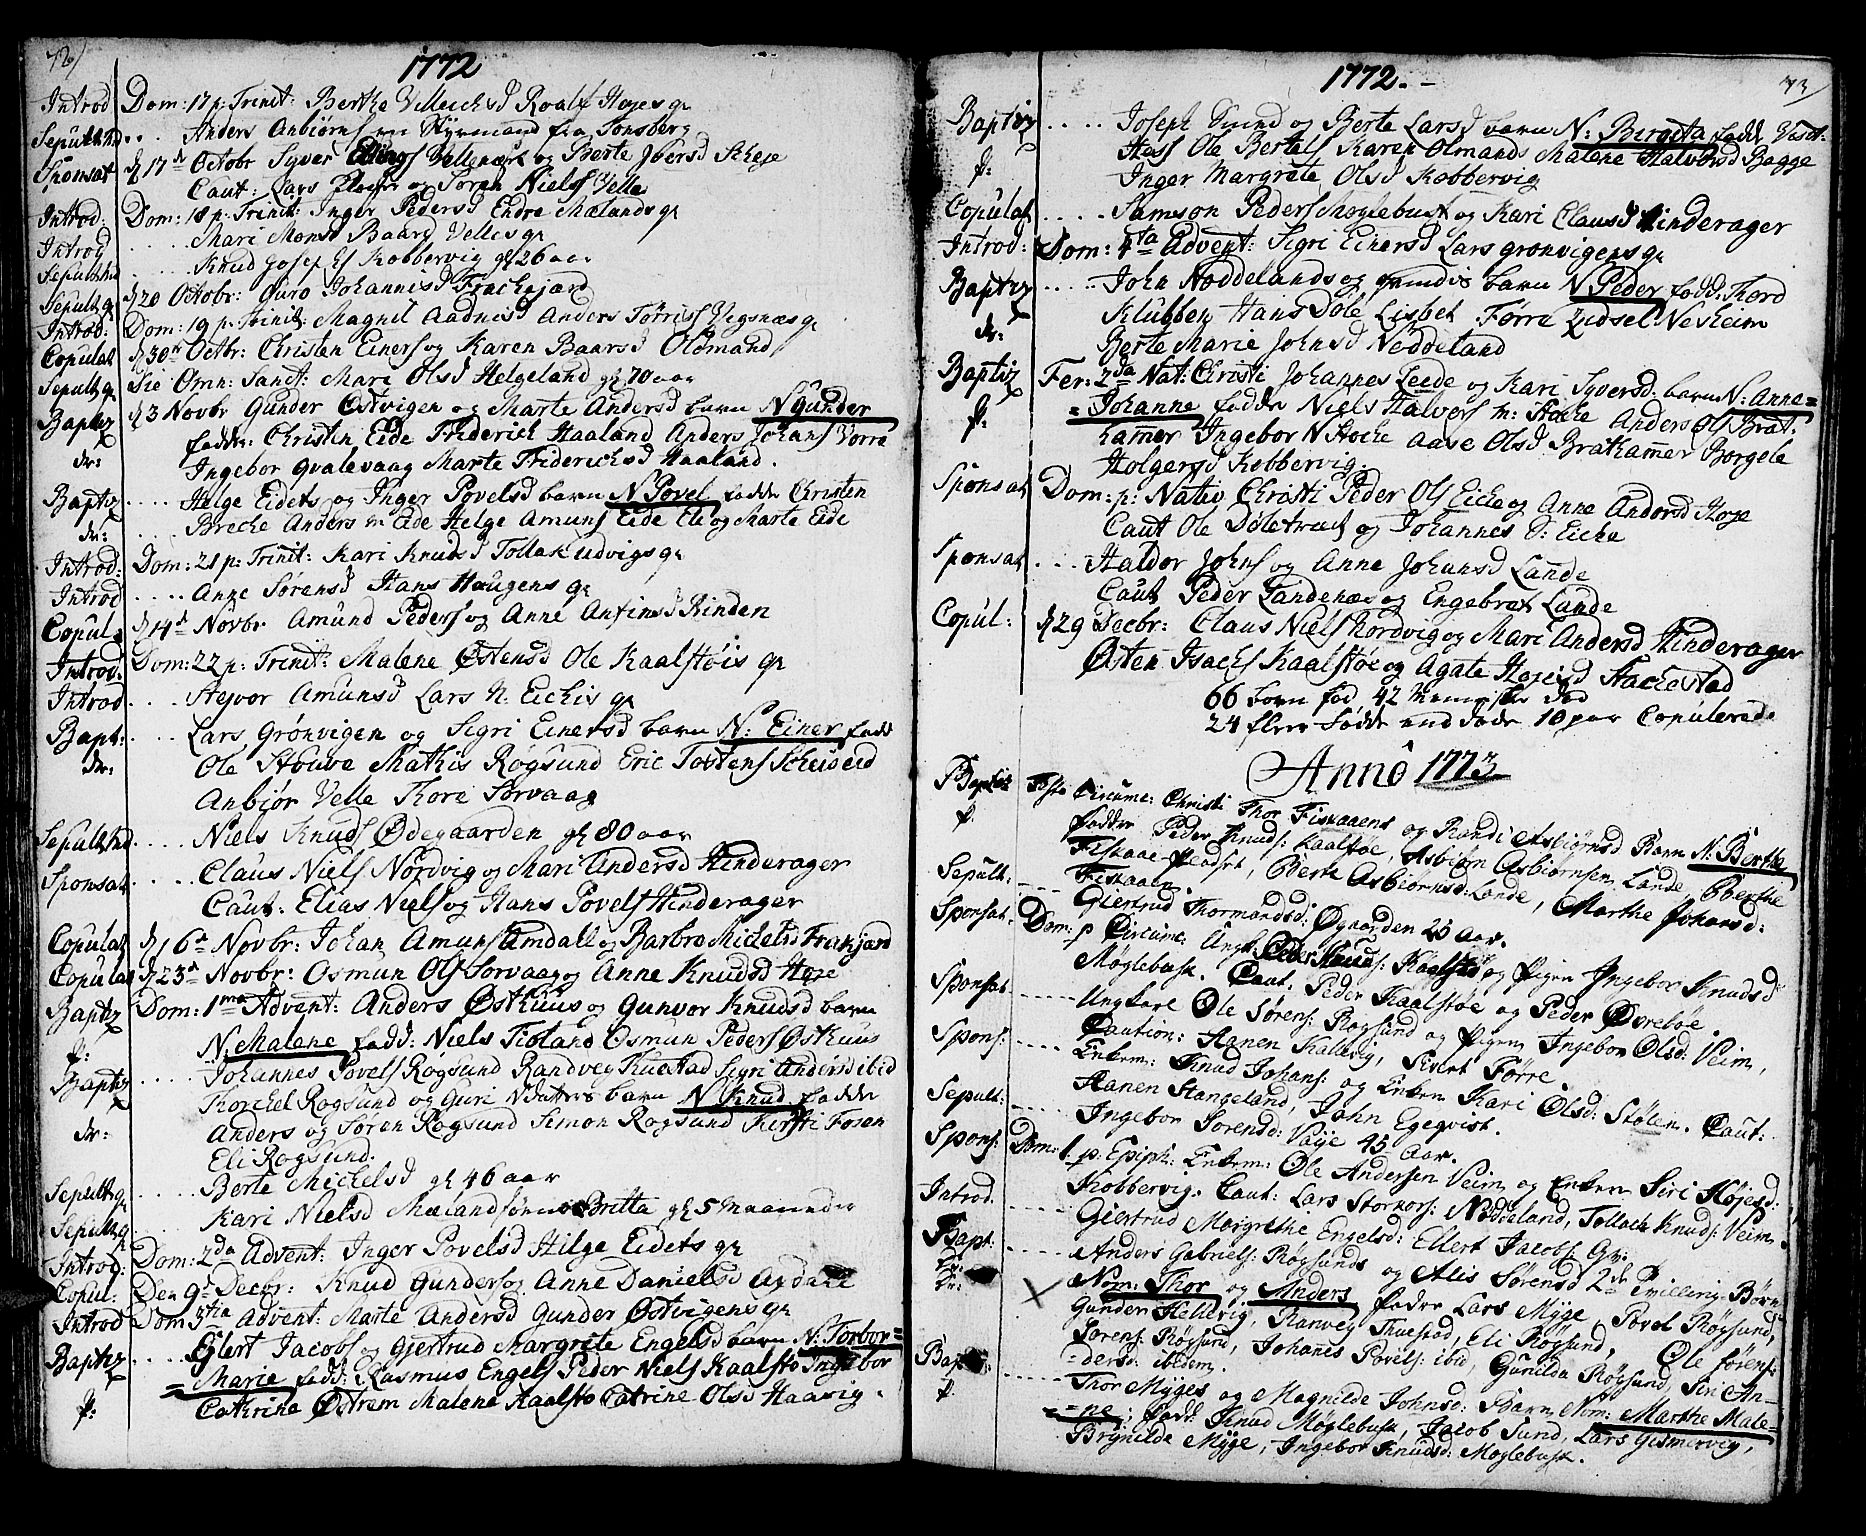 72)
1772
Introd Dom: 17 p: Trinit: Berthe Villeichsd Roalf Hojes qr
Sepult hd .. Anders Anbiørns en Styrmand fra Tonsberg
Sponsat d 17d Octobr Syver Vellenæs og Berte Jversd Scheje
Caut: Lars og Søren Niels Velle
Introd: Dom: 18 p: Trinit: Inger Pedersd Endre Mælands qr
Introd ..... Mari Monsd Baard Velles qr
Sepult hd ..... Knud Josephs Kobbervig gl 26 aar
Sepult q d 20 Octobr: Guro Johannisd Frachajord
Introd: Dom: 19 p: Trinit: Magnil Aadnesd Anders Tørris Vigsnæs qr
Copulat d 30te Octbr: Christen Einers og Karen Baarsd Oldmand
Sepult q Die Omn: Sanct: Mari Olsd Helgeland gl 70 aar
Baptiz d 3 Novbr Gunder Østvigen og Marte Andersd barn N Gunder
fadde: Christen Eide Friderich Haaland Anders Johans Vorre
dr: Ingebor Qvalevaag Marte Friderichsd Haaland.
Baptz .... Helge Eidets og Inger Povelsd barn N Povel fadde Christen
dr: Breche Anders m Eide Helge Amuns Eide Eli og Marte Eide
Introd: Dom: 21 p: Trinit: Kari Knudsd Tollak udvigs qr
Introd .... Anne Sørensd Hans Haugens qr
Copul: d 14d Novbr Amund Peders og Anne Anfinsd Rinden
Introd: Dom: 22 p: Trinit: Malene Østensd Ole Kaalstøis qr
Introd .... Hejvor Amunsd Lars N: Eichis qr
Bapt: .... Lars Grønvigen og Sigri Einersd barn N: Einer fadd
dr: Ole Stouve Mathis Røgsund Eric Tostens Scheiseid
Anbiør Velle Thore Sørvaag
Sepult hd .... Niels Knuds Ødegaarden gl 80 aar
Sponsat ..... Claus Niels Nordvig og Mari Andersd Hinderager
Caut: Elias Niels og Hans Povels Hinderager
Copulat d 16d Novbr: Johan Amuns Amdall og Barbro Michelsd Frekjord
Copulat d 23d Novbr: Osmun Ols Sørvaag og Anne Knudsd Hoje
Baptz Dom: 1ma Advent: Anders Østhuus og Gunvor Knudsd barn
p: N: Malene fadd: Niels Fioland Osmun Peders Østhuus
Johannes Povels Røgsund Randveg Thuestad Sigri Andersd ibid
Baptz ..... Thorchel Rogsund og Guri N datters barn N Knud fadde
dr: Anders og Søren Rogsund Simon Rogsund Kirsti Foren
Eli Rogsund.
Sepult q ..... Berte Michelsd gl 46 aar
Sepult q Kari Nielsd Mæland Britta gl 5 Maaneder
Introd: Dom: 2da Advent: Inger Povelsd Hilge Eidets qr
Copul: Den 9d Decbr: Knud Gunders og Anne Danielsd Avdall
Introd Dom 3tia Advent: Marte Andersd Gunder Østvigens qr
Baptz ..... Ejlert Jacobs og Gjertrud Margrete Engelsd barn N: Torbor=
=Marie fadd: Rasmus Engels Peder Niels Kaalstø Ingebor
p: Cathrina Østrem Malene Kaalstø Catrine Olsd Haavig.
73)
1772.-
Baptiz ..... Joseph Sund og Berte Larsd barn N: Birgeta fadd Vest-
p: Hass Ole Bertels Karen Olmands Malene Halvorsd Bagge
Inger Margrete Olsd Kobbervig
Copulat ..... Samson Peders Moglebust og Kari Clausd Hinderager
Introd: Dom: 4ta Advent: Sigri Einersd Lars Grønvigens qr
Baptiz ..... John Nøddelands og barn N Peder fadd: Thord
dr: Klubben Hans Døle Lisbet Førre Zidsel Nesheim
Berte Marie Johnsd Nøddeland
Baptiz Fer: 2da Nat: Christi Johannes Leede og Kari Syversd: barn N: Anne=
p: =Johanne fadde Niels Halvers m: Stoche Anders Ols Brat-
kamer Ingebor N Stoche Aase Olsd Bratkamer Borgele
Holgersd Kobbervig.
Sponsat Dom: p: Nativ Christi Peder Ols Eiche og Anne Andersd Hoje
Caut Ole Døletræt og Johannes Eiche
Sponsat ... Haldor Johns og Anne Johansd Lande
Caut Peder Landenæs og Engebret Lande
Copul: d 29 Decbr: Claus Niels Nordvig og Mari Andersd Hinderager
Østen Isachs Kaalstøe og Agate Hojesd Stachestad
66 børn fød 42 Mennisker død
24 flere fødde end døde 10 par Copulerede
Anno 1773
Baptiz Festo Circumc: Christi Thor Fiskaaens og Randi Asbiørnsd Barn N: Berthe
p. fadder Peder Knuds: Kaalstøe, Asbiørn Asbiørnsen Lande, Berthe
Fiskaae Berte Asbiørnsd: Lande, Marthe Johansd:
Fiskaaen.
Sepult: ..... Giertrud Thormandsd: Øgaarden 23 Aar.
Sponsat: Dom: p Circumc: Ungk: Peder Knuds: Kaalstø og Pigen Ingebor Knudsd
Møglebust. Caut. Peder Kaalstøe og Peder Øvrebøe.
Sponsat ..... Ungkarl Ole Sørens: Røgsund og Pigen Ingebor Olsd: Veim,
Caution: Hanen Kallevig, Sivert Førre.
Spons: ..... Enkem: Knud Johans: og Enken Kari Olsd: Stølen. Caut:
Hanen Stangeland, John Egeqvist.
Sepult: ..... Ingebor Sorensd: Vaje 45 Aar.
Spons: Dom: 1. p. Epiph: Enkem: Ole Andersen Veim og Enken Siri Højesd:
Kobbervig. Caut: Lars Storkors: Nøddeland, Tollach Knuds: Veim.
Introd. ..... Giertrud Margrethe Engelsd: Ellert Jacobs: Qv:
Bapt: ..... Anders Gabriels: Røgsunds og Alis Sørensd 2de Tvilling: Børn
Nom: Thor og Anders fadre Lars Myge, Povel Røgsund,
Gunder Hellevig, Ranveg Thuestad, Eli Røgsund, Ole Sørens:
Sorens: Røgsund, Johanes Povels: ibid, Gunilda Røgsund, Siri An-
=dersd: ibidem.
Bapt: ..... Thor Myges og Magnilde Johnsd: Barn Nom: Marthe Male=
p: =ne; fadd: Knud Møglebust, Jacob Sund, Lars Gismervig,
Brynilda Myge, Ingebor Knudsd: Moglebust.